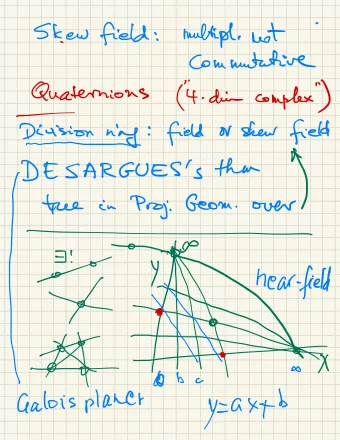 Skew field: multipl. not
commutative
Quaternions ("4-dim complex")
Division ring: field or skew field
DESARGUES's thm
true in Proj. Geom. over
∃!
∞
y
near-field
b c
∞
X
Galois planes
y=ax+b